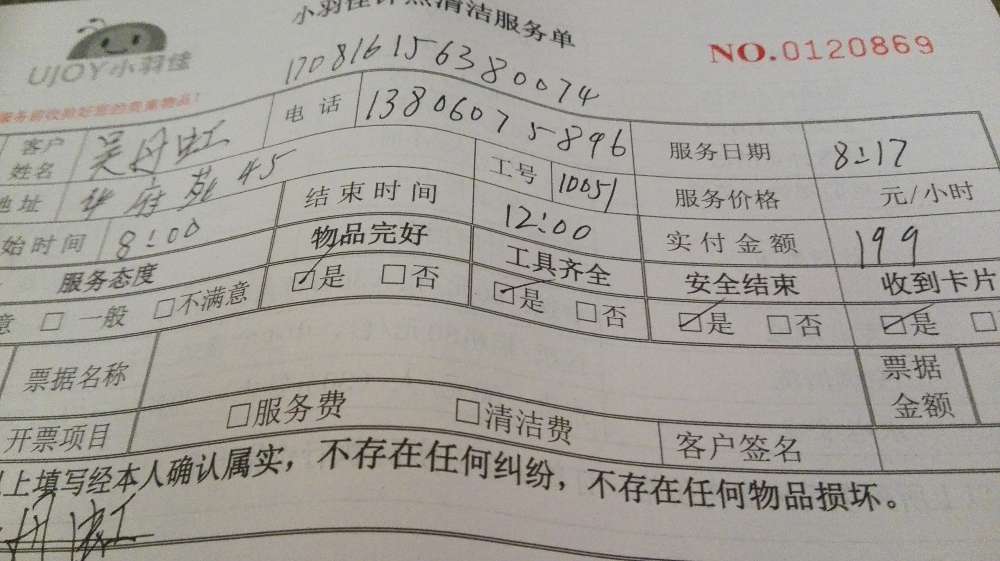 小羽佳计点清洁服务单
UJOY小羽佳
NO.0120869
170816156380074
服务前收拾好您的贵重物品!
客户姓名 吴丹虹 电话 13806075896 服务日期 8:17
地址 华府苑 45 工号 10051 服务价格 元/小时
始时间 8:00 结束时间 12:00 实付金额 199
服务态度 物品完好 工具齐全 安全结束 收到卡片
意 □ 一般 □不满意 ☑是 □否 ☑是 □否 ☑是 □否 ☑是 □
票据名称 票据金额
开票项目 □服务费 □清洁费 客户签名
上填写经本人确认属实，不存在任何纠纷，不存在任何物品损坏。